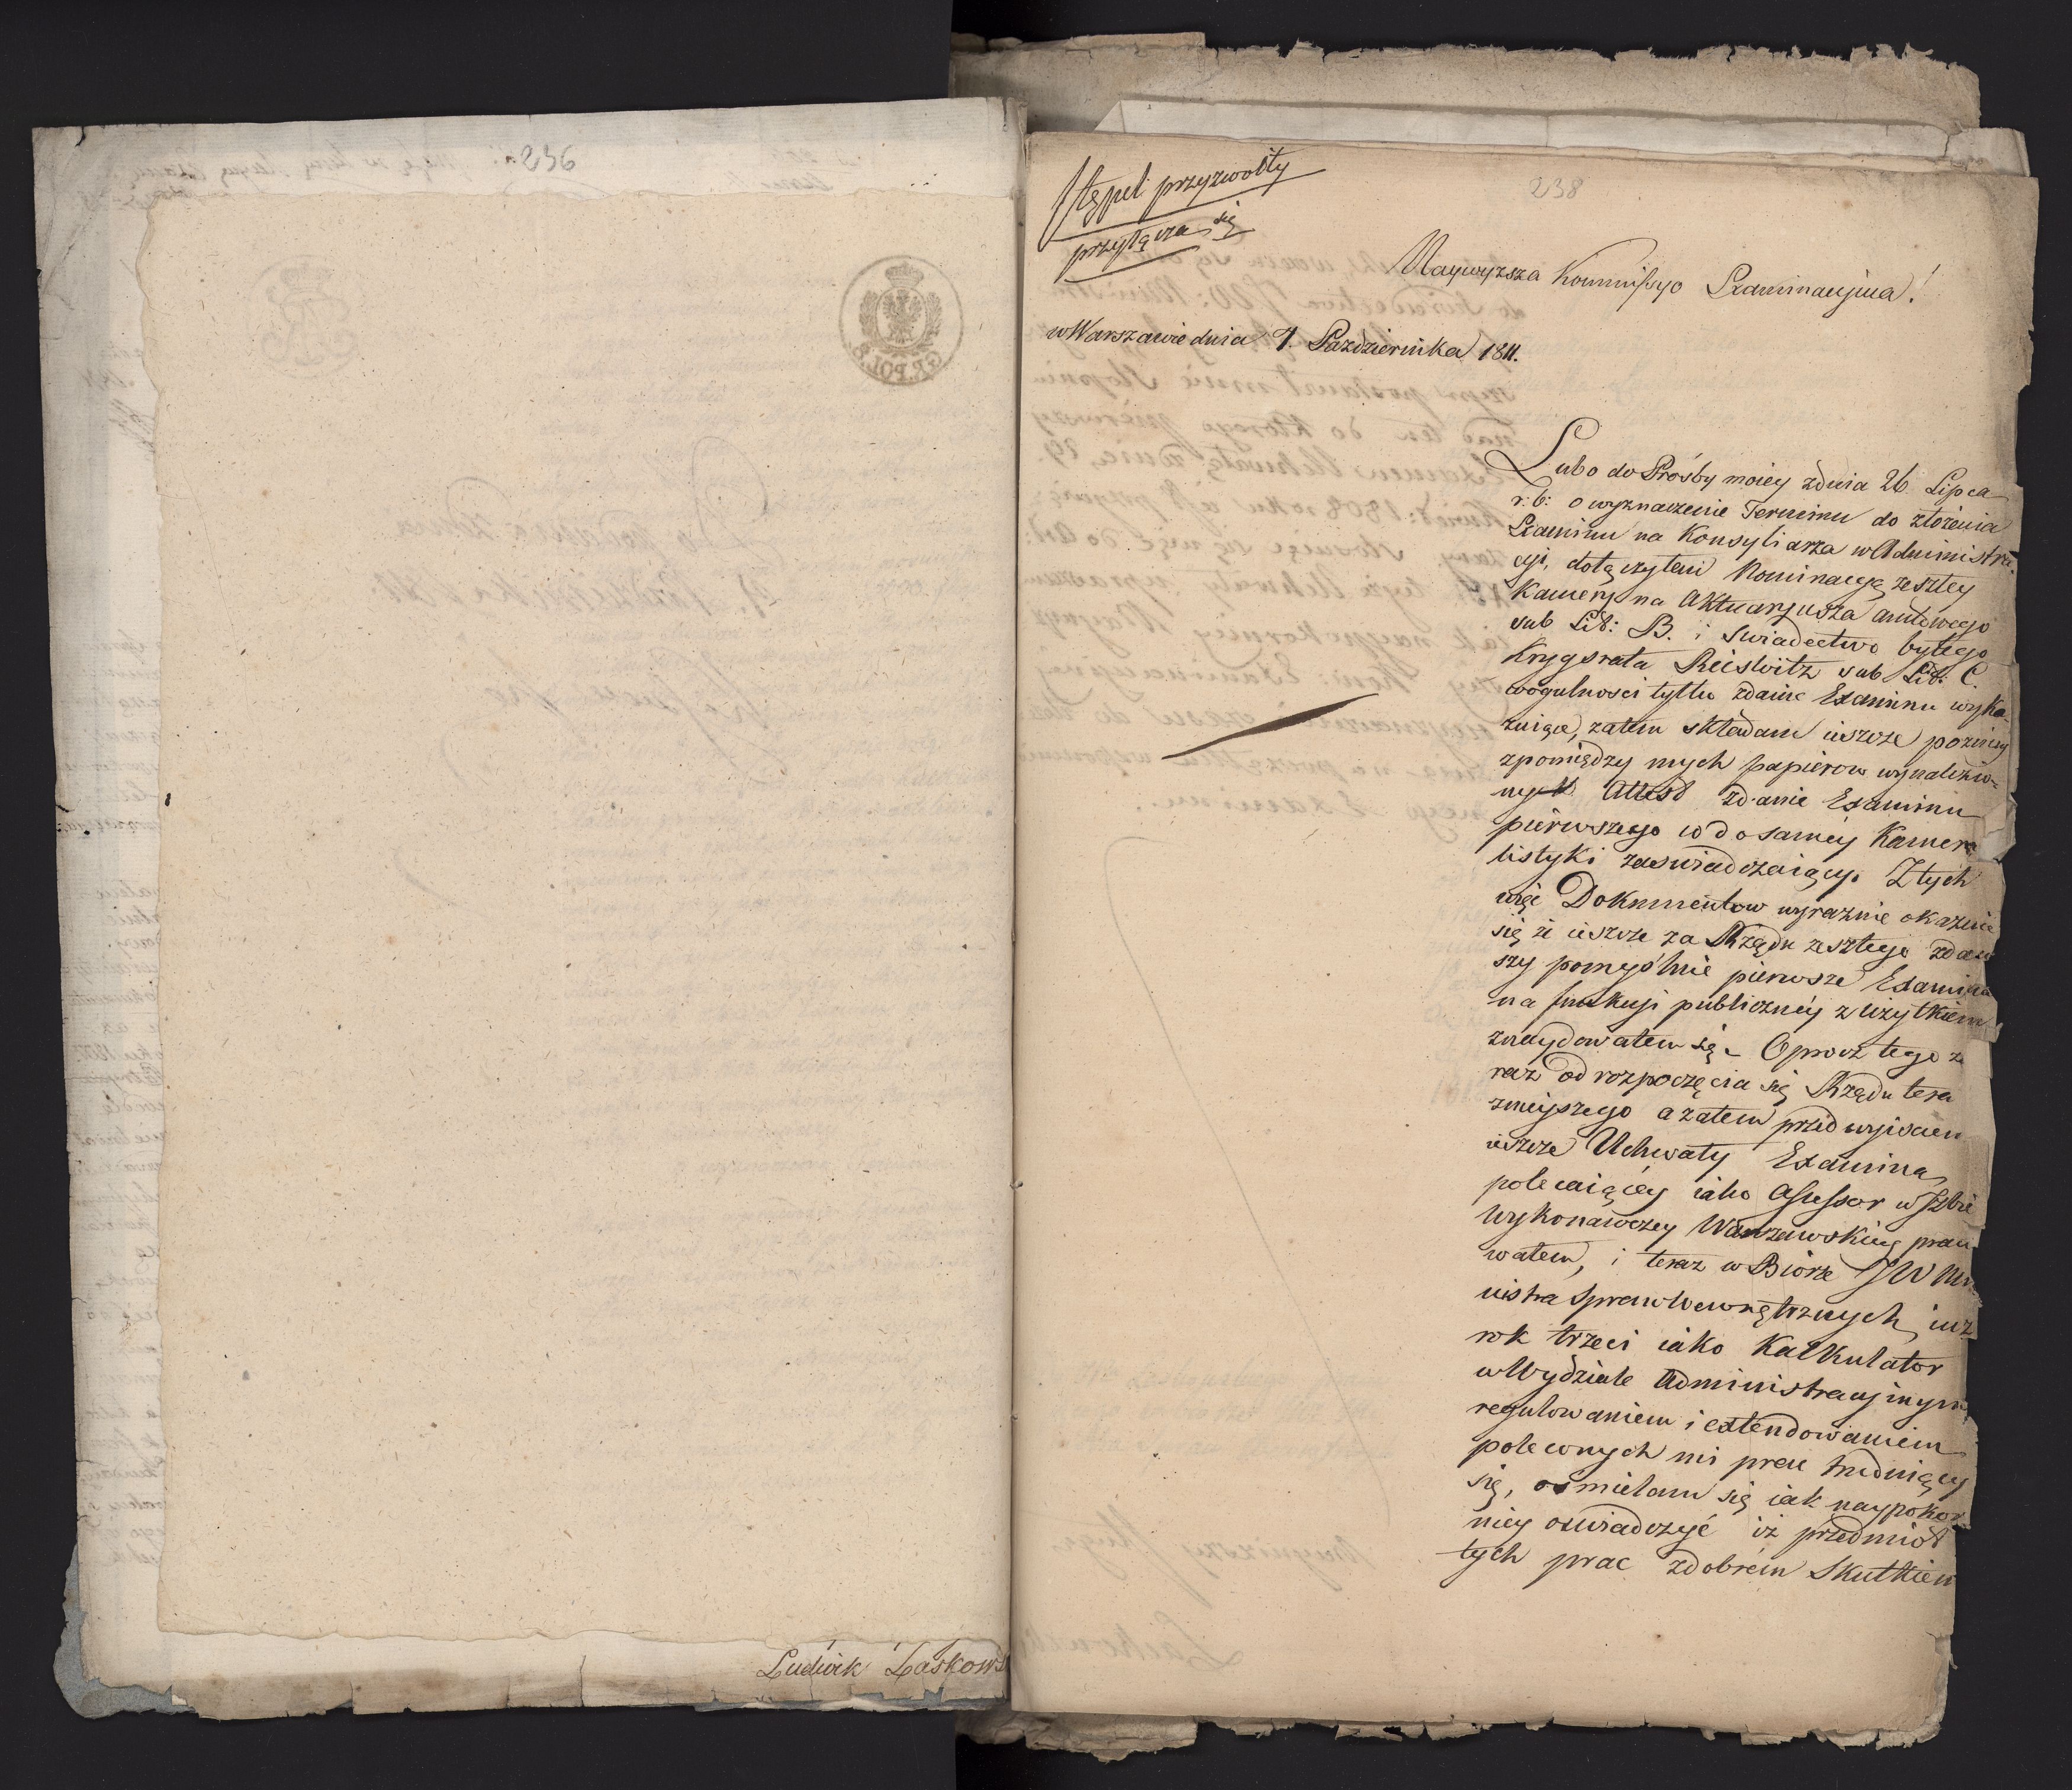 236
8. GR. POL
Ludwik Laskows
238
Stępel przyzwoity
przyłącza się
Naywyzsza Kommissyo Examinacyina!
w Warszawie dnia 7. Pazdziernika 1811.
Lubo do Prośby moiey zdnia 26 Lipca
r. b: o wyznaczenie Terminu do złożenia
Examinu na Konsyliarza w Administra
cyi, dołączyłem Nominacyą zeszłey
Kamery na Aktuaryusza amtowego
sub Lit: B. i Swiadectwo byłego
Krygsrata Reiswitz sub Lit: C.
wogulnosci tylko zdanie Examinu wyka-
zuiące, zatem składam ieszcze pozniey
zpomiędzy mych papierow wynalezio-
nych Attest zdanie Examinu
pierwszego w do samey Kamera
listyki zaswiadczaiący. Z tych
więc Dokumentow wyraznie okazuie
się że ieszcze za Rządu zeszłego zdaw
szy pomyślnie pierwsze Examina
na funkcyi publiczney z użytkiem
znaydowałem się. Oprocz tego za
raz od rozpoczęcia się Rządu tera
znieyszego a zatem przed wyisciem
ieszcze Uchwały Examina
polecaiącey iako Assessor w Izbie
Wykonawczey Warszawskiey praco
wałem, i teraz w Biorze JW Mi
nistra Spraw Wewnętrznych, iuż
rok trzeci iako Kalkulator
w Wydziale Administracyinym
regulowaniem i extendowaniem
poleconych mi prac trudniący
się, osmielam się iak naypokor
niey oswiadczyć iż przedmiot
tych prac zdobrém Skutkiem